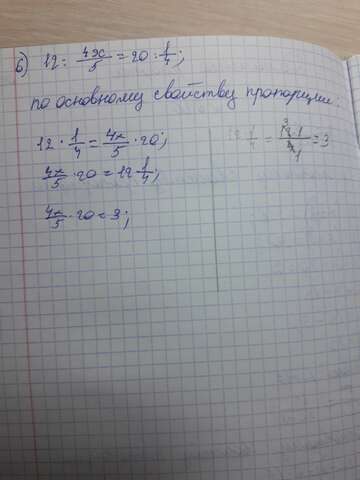 б) 12 : 4x/5 = 20 : 1/4;
по основному свойству пропорции:
12 · 1/4 = 4x/5 · 20;
12 · 1/4 = 12·1/4 = 3
4x/5 · 20 = 12 1/4;
4x/5 · 20 = 3;